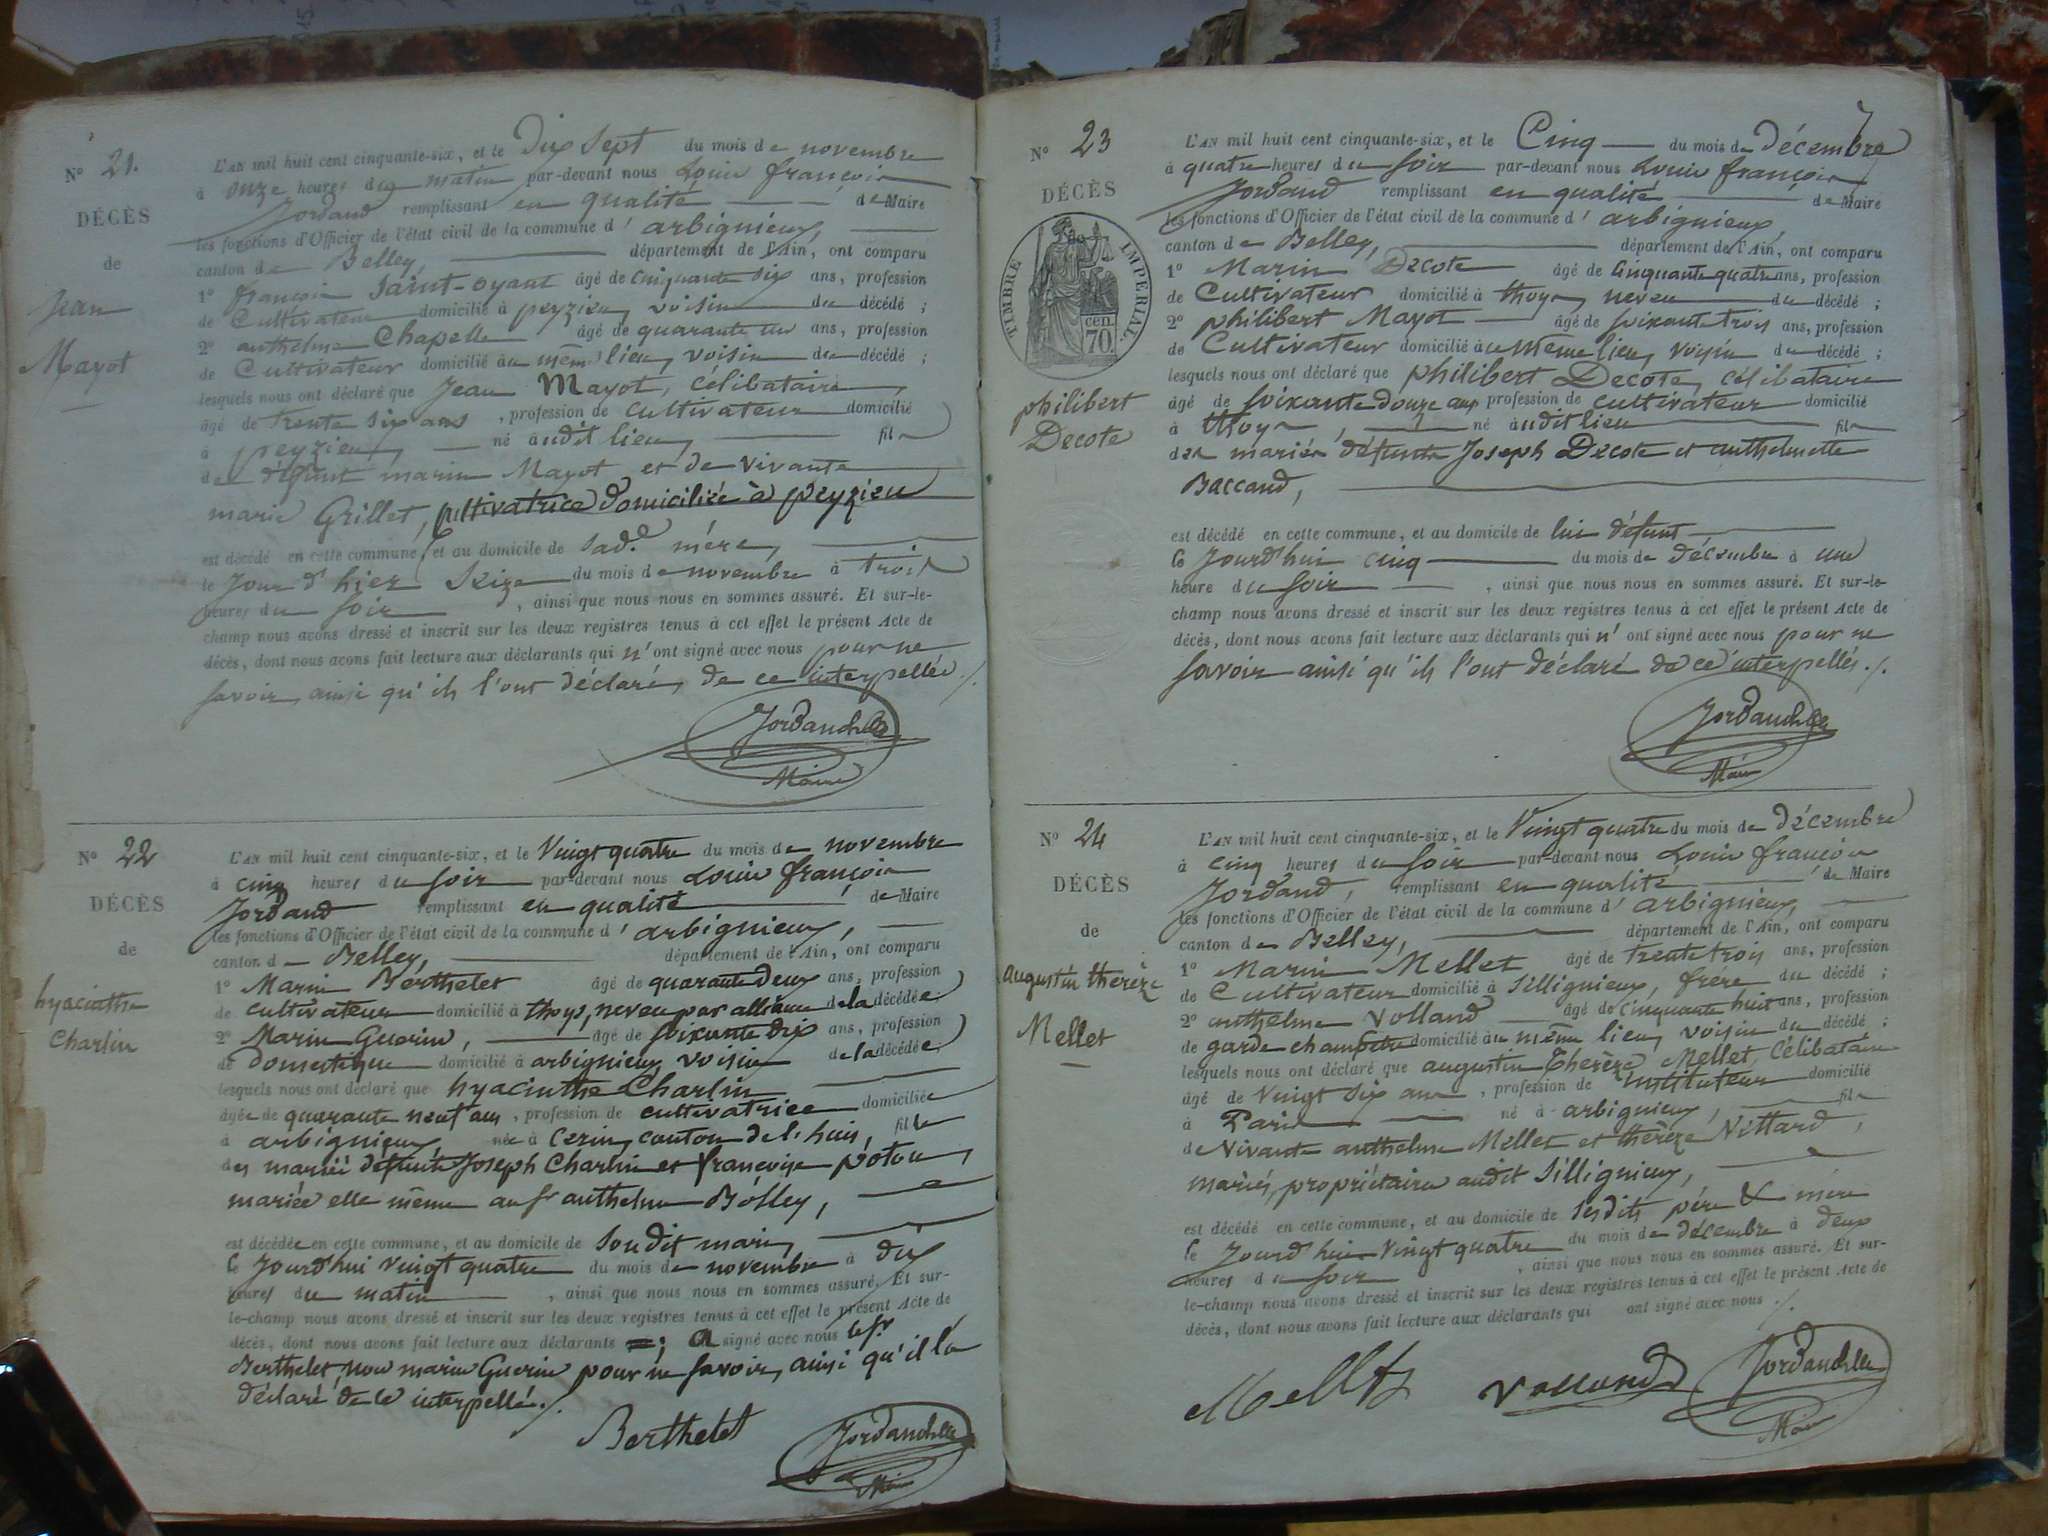 N° 21.
DÉCÈS
de
Jean
Mayot
L'AN mil huit cent cinquante-six, et le Dix Sept du mois de novembre
à onze heures du matin par-devant nous Louis françois
Jordand remplissant en qualité de Maire
les fonctions d'Officier de l'état civil de la commune d' arbignieux,
canton de Belley, département de l'Ain, ont comparu
1° françois Saint-oyant âgé de cinquante six ans, profession
de Cultivateur domicilié à peyzieu, voisin du décédé ;
2° anthelme Chapelle âgé de quarante un ans, profession
de Cultivateur domicilié au même lieu, voisin du décédé ;
lesquels nous ont déclaré que Jean Mayot, célibataire,
âgé de trente six ans, profession de cultivateur domicilié
à peyzieu, né àudit lieu, fils
de défunt marin Mayot et de vivante
marie Grillet, cultivatrice domiciliée à peyzieu
est décédé en cette commune, et au domicile de sad.e mère,
le Jour d'hier Seize du mois de novembre à trois
heures du soir, ainsi que nous nous en sommes assuré. Et sur-le-
champ nous avons dressé et inscrit sur les deux registres tenus à cet effet le présent Acte de
décès, dont nous avons fait lecture aux déclarants qui n'ont signé avec nous pour ne
savoir, ainsi qu'ils l'ont déclaré, de ce interpellés ./.
Maire
N° 22
DÉCÈS
de
hyacinthe
Charlin
L'AN mil huit cent cinquante-six, et le Vingt quatre du mois de novembre
à cinq heures du soir par-devant nous Louis françois
Jordand remplissant en qualité de Maire
les fonctions d'Officier de l'état civil de la commune d' arbignieux,
canton de Belley, département de l'Ain, ont comparu
1° Marin Berthelet âgé de quarante deux ans, profession
de cultivateur domicilié à thoys, neveu par alliance de la décédée
2° Marin Guerin, âgé de soixante dix ans, profession
de Domestique domicilié à arbignieux, voisin de la décédée
lesquels nous ont déclaré que hyacinthe Charlin
âgée de quarante neuf ans, profession de cultivatrice domiciliée
à arbignieux, née à Cerin, canton de l'huis, fille
des mariés défunts Joseph Charlin et françoise poton,
mariée elle même au sr anthelme Bolley,
est décédée en cette commune, et au domicile de son dit mari,
le Jourd'hui vingt quatre du mois de novembre à dix
heures du matin, ainsi que nous nous en sommes assuré. Et sur-
le-champ nous avons dressé et inscrit sur les deux registres tenus à cet effet le présent Acte de
décès, dont nous avons fait lecture aux déclarants =; a signé avec nous le sr
Berthelet, non marin Guerin pour ne savoir, ainsi qu'il l'a
déclaré de ce interpellé ./.
Berthelet
N° 23
DÉCÈS
de
TIMBRE IMPERIAL.
70 cen
philibert
Decote
L'AN mil huit cent cinquante-six, et le Cinq du mois de décembre
à quatre heures du soir par-devant nous Louis françois
Jordand remplissant en qualité de Maire
les fonctions d'Officier de l'état civil de la commune d' arbignieux
canton de Belley, département de l'Ain, ont comparu
1° Marin Decote âgé de cinquante quatre ans, profession
de Cultivateur domicilié à thoys, neveu du décédé ;
2° philibert Mayot âgé de soixante trois ans, profession
de Cultivateur domicilié au même lieu, voisin du décédé ;
lesquels nous ont déclaré que philibert Decote, célibataire
âgé de soixante douze ans profession de cultivateur domicilié
à thoys, né àudit lieu fils
des mariés défunts Joseph Decote et anthelmette
Baccand,
est décédé en cette commune, et au domicile de lui défunt
le Jourd'hui cinq du mois de décembre à une
heure du soir, ainsi que nous nous en sommes assuré. Et sur-le-
champ nous avons dressé et inscrit sur les deux registres tenus à cet effet le présent Acte de
décès, dont nous avons fait lecture aux déclarants qui n'ont signé avec nous pour ne
savoir ainsi qu'ils l'ont déclaré de ce interpellés ./.
Maire
N° 24
DÉCÈS
de
augustin therèze
Mellet
L'AN mil huit cent cinquante-six, et le Vingt quatre du mois de décembre
à cinq heures du soir par-devant nous Louis françois
Jordand, remplissant en qualité de Maire
les fonctions d'Officier de l'état civil de la commune d' arbignieux,
canton de Belley, département de l'Ain, ont comparu
1° Marin Mellet âgé de trente trois ans, profession
de Cultivateur domicilié à Sillignieux, frère du décédé ;
2° anthelme Volland âgé de cinquante huit ans, profession
de garde champêtre domicilié au même lieu, voisin du décédé ;
lesquels nous ont déclaré que augustin therèze Mellet, célibataire
âgé de vingt six ans, profession de instituteur domicilié
à Paris né à arbignieux, fils
de Vivants anthelme Mellet et thérèze Nittard,
mariés, propriétaires audit Sillignieux,
est décédé en cette commune, et au domicile de sesdits père & mère
le Jourd'hui vingt quatre du mois de décembre à deux
heures du soir, ainsi que nous nous en sommes assuré. Et sur-
le-champ nous avons dressé et inscrit sur les deux registres tenus à cet effet le présent Acte de
décès, dont nous avons fait lecture aux déclarants qui ont signé avec nous ./.
Mellet Volland
Maire